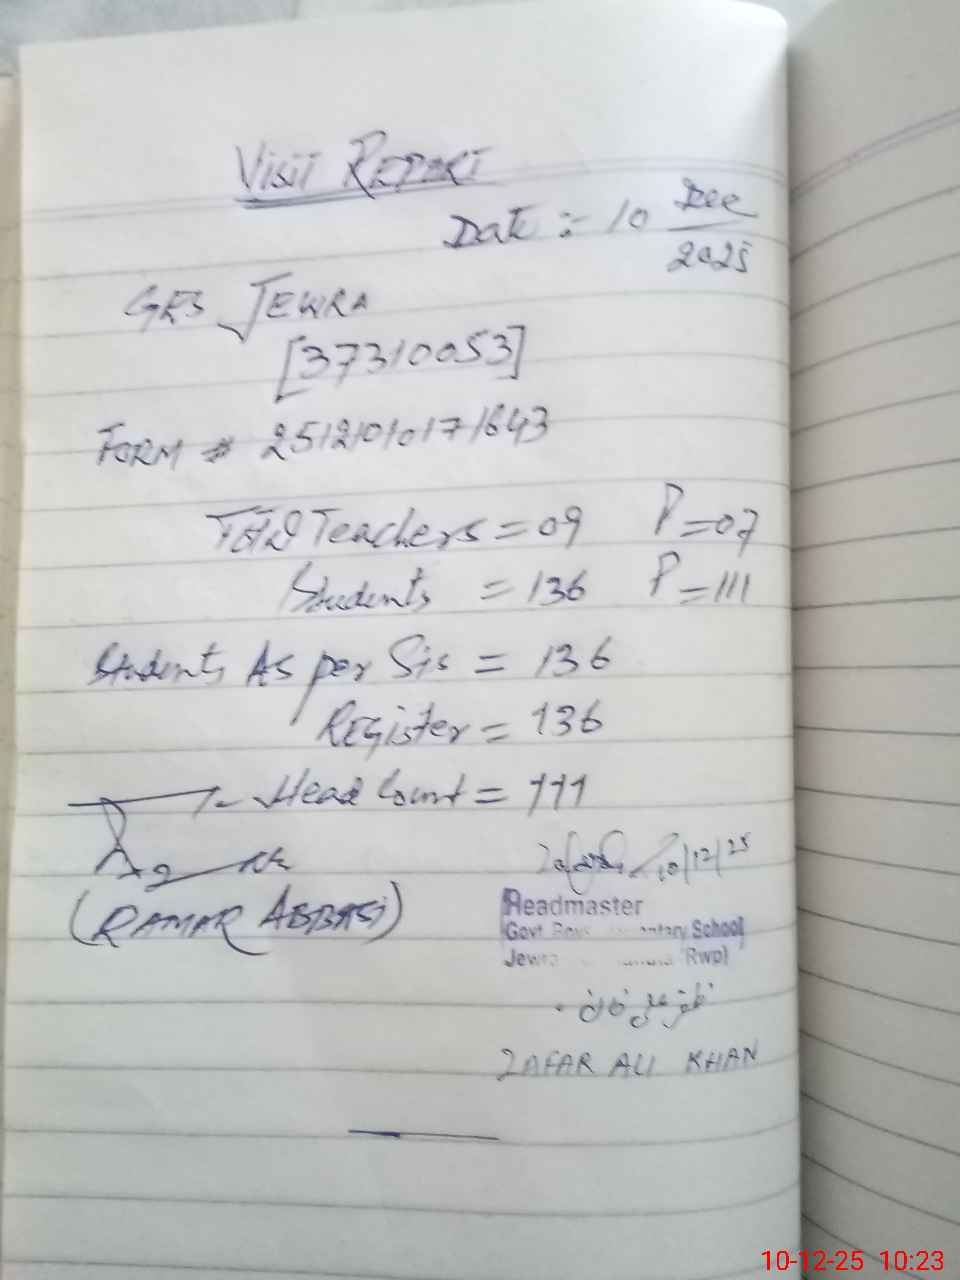 VISIT REPORT
Date :- 10 Dec
2025
GES JEWRA
[37310053]
FORM # 2512101017 1643
Total Teachers = 09 P = 07
Students = 136 P = 111
Students As per Sis = 136
Register = 136
Head Count = 111
10/12/25
(RAMAR ABBASI)
Headmaster
Govt Boys School
Jewra (Rwp)
ظفر علی خان
ZAFAR ALI KHAN
10-12-25 10:23